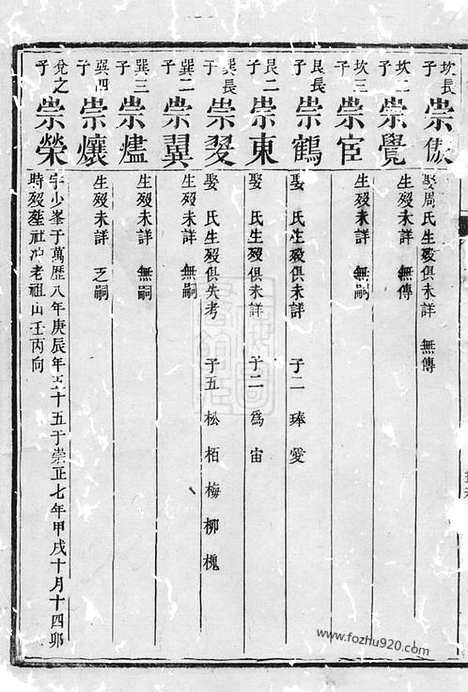 坎長子 崇 娶周氏生歿俱未詳 無傳
坎二子 崇覺 生歿未詳 無傳
坎三子 崇宦 生歿未詳 無嗣
艮長子 崇鶴 娶 氏生歿俱未詳 子二 琫 愛
艮二子 崇東 娶 氏生歿俱未詳 子二 為 宙
巽長子 崇燮 娶 氏生歿俱失考 子五 松 栢 梅 柳 槐
巽二子 崇翼 生歿未詳 無嗣
巽三子 崇爐 生歿未詳 無嗣
巽四子 崇爌 生歿未詳 乏嗣
兌之子 崇榮 字少峯于萬歷八年庚辰年五十五于崇正七年甲戌十月十四卯
時歿塟社冲老祖山壬丙向
www.fozhu920.com